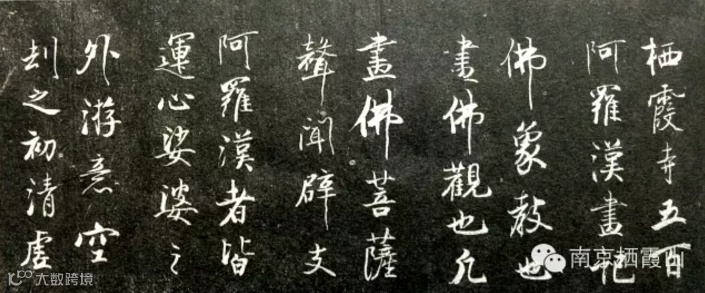 栖霞寺五百
阿羅漢畫記
佛象教也
畫佛觀也凡
畫佛菩薩
聲聞辟支
阿羅漢者皆
運心娑婆之
外游意空
刦之初清虛
南京栖霞四
大数跨境